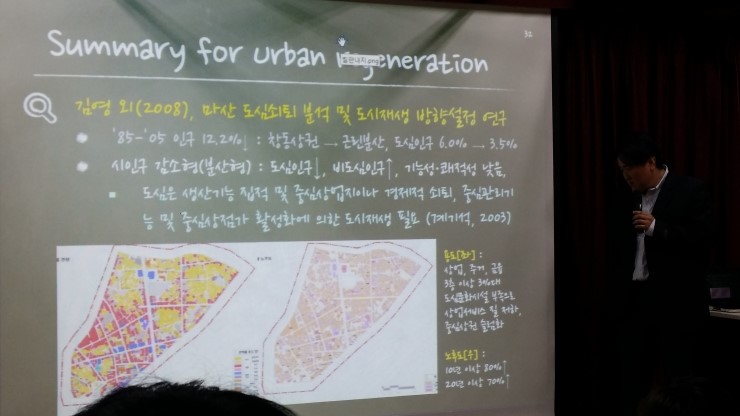 Summary for urban regeneration
32
김영 외(2008), 마산 도심쇠퇴 분석 및 도시재생 방향설정 연구
'85-'05 인구 12.2%↓ : 창동상권 → 근린분산, 도심인구 6.0% → 3.5%
시인구 감소형(분산형) : 도심인구↓, 비도심인구↑, 기능성·쾌적성 낮음,
도심은 생산기능 집적 및 중심상업지이나 경제적 쇠퇴, 중심관리기
능 및 중심상점가 활성화에 의한 도시재생 필요 (계기석, 2003)
용도[좌] :
상업, 주거, 금융
3층 이상 3%대
도심문화시설 부족으로
상업서비스 질 저하,
중심상권 슬럼화
노후도[우] :
10년 이상 80%↑
20년 이상 70%↑